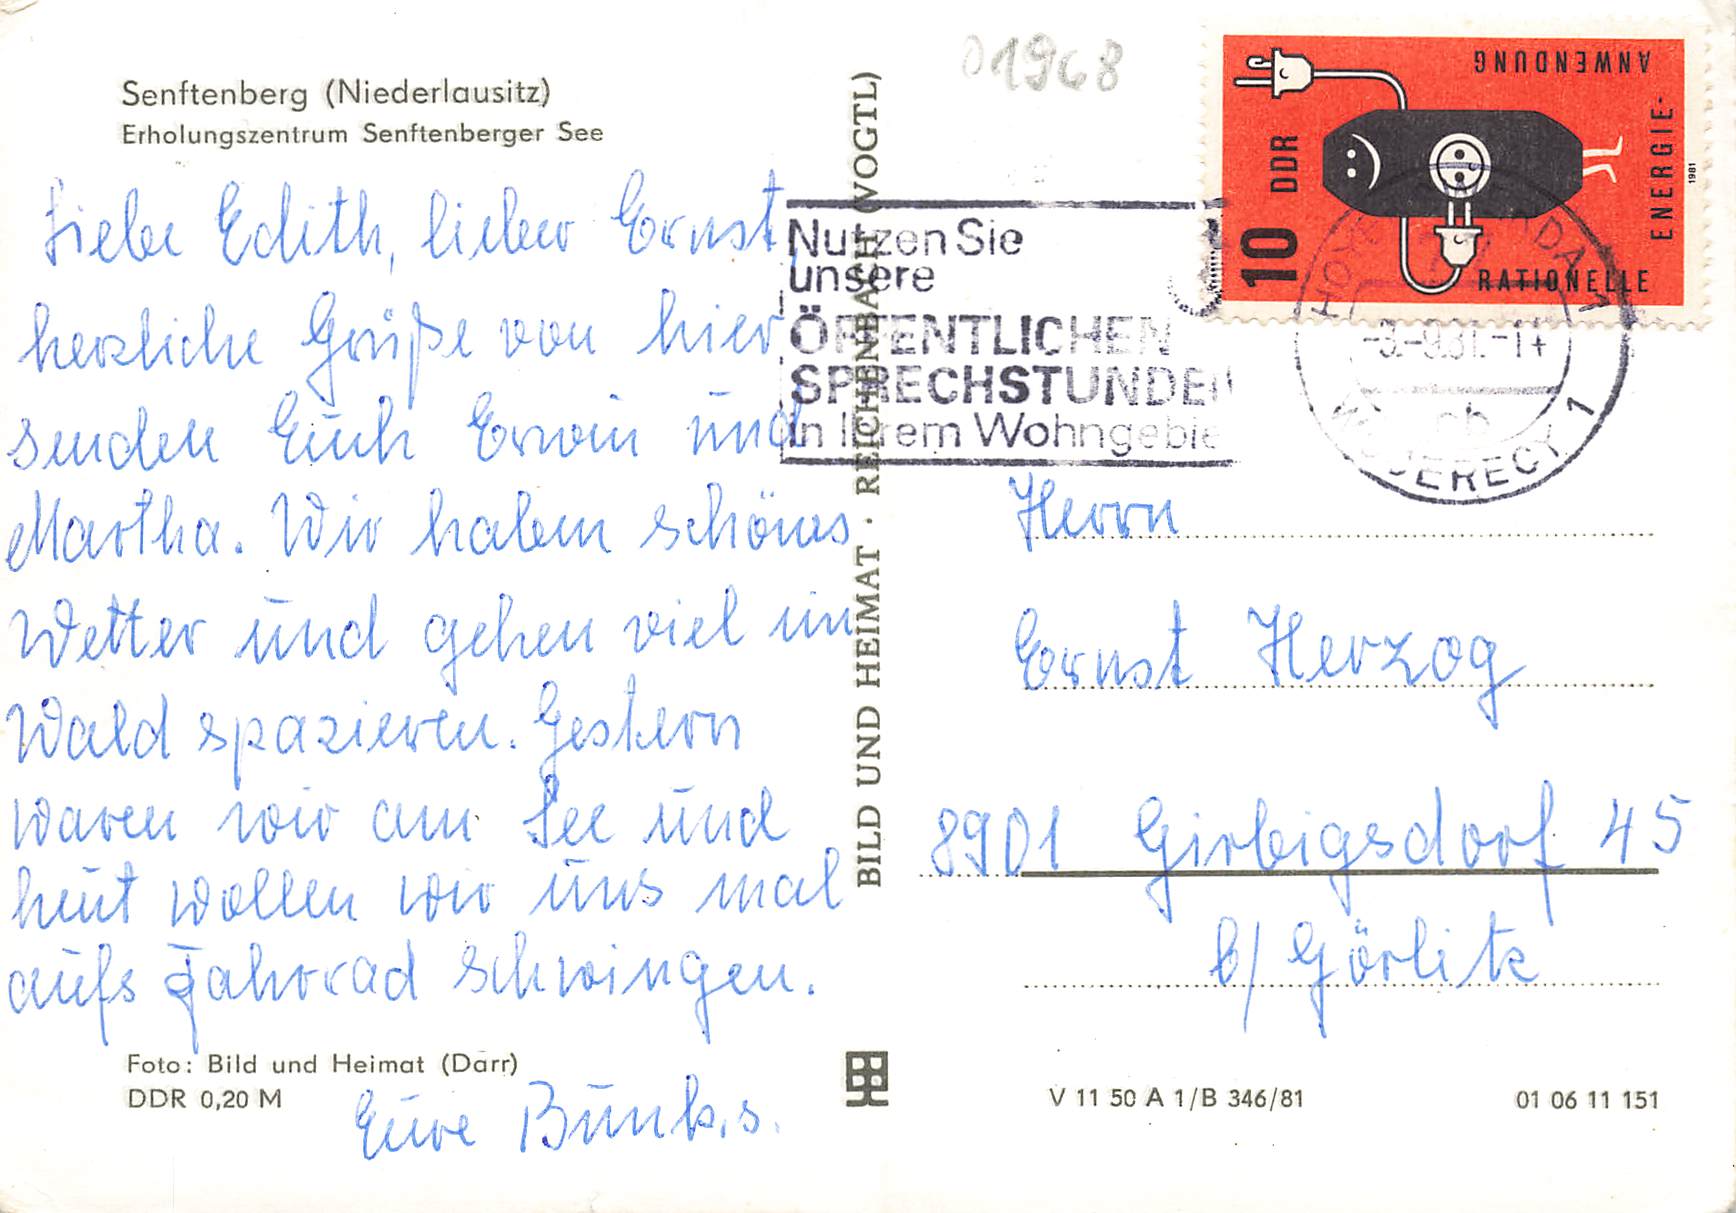 Senftenberg (Niederlausitz)
Erholungszentrum Senftenberger See
Liebe Edith, lieber Ernst,
herzliche Grüße von hier
senden Euch Erwin und
Martha. Wir haben schönes
Wetter und gehen viel im
Wald spazieren. Gestern
waren wir am See und
heut wollen wir uns mal
aufs Fahrrad schwingen.
Foto: Bild und Heimat (Darr)
DDR 0,20 M
Eure Bunks.
BILD UND HEIMAT · REICHENBACH (VOGTL)
01968
Nutzen Sie
unsere
ÖFFENTLICHEN
SPRECHSTUNDEN
in Ihrem Wohngebie
10 DDR
RATIONELLE
ENERGIE-
ANWENDUNG
1981
HOYERSWERDA
WOJERECY 1
Herrn
Ernst Herzog
8901 Girbigsdorf 45
b/ Görlitz
V 11 50 A 1/B 346/81
01 06 11 151